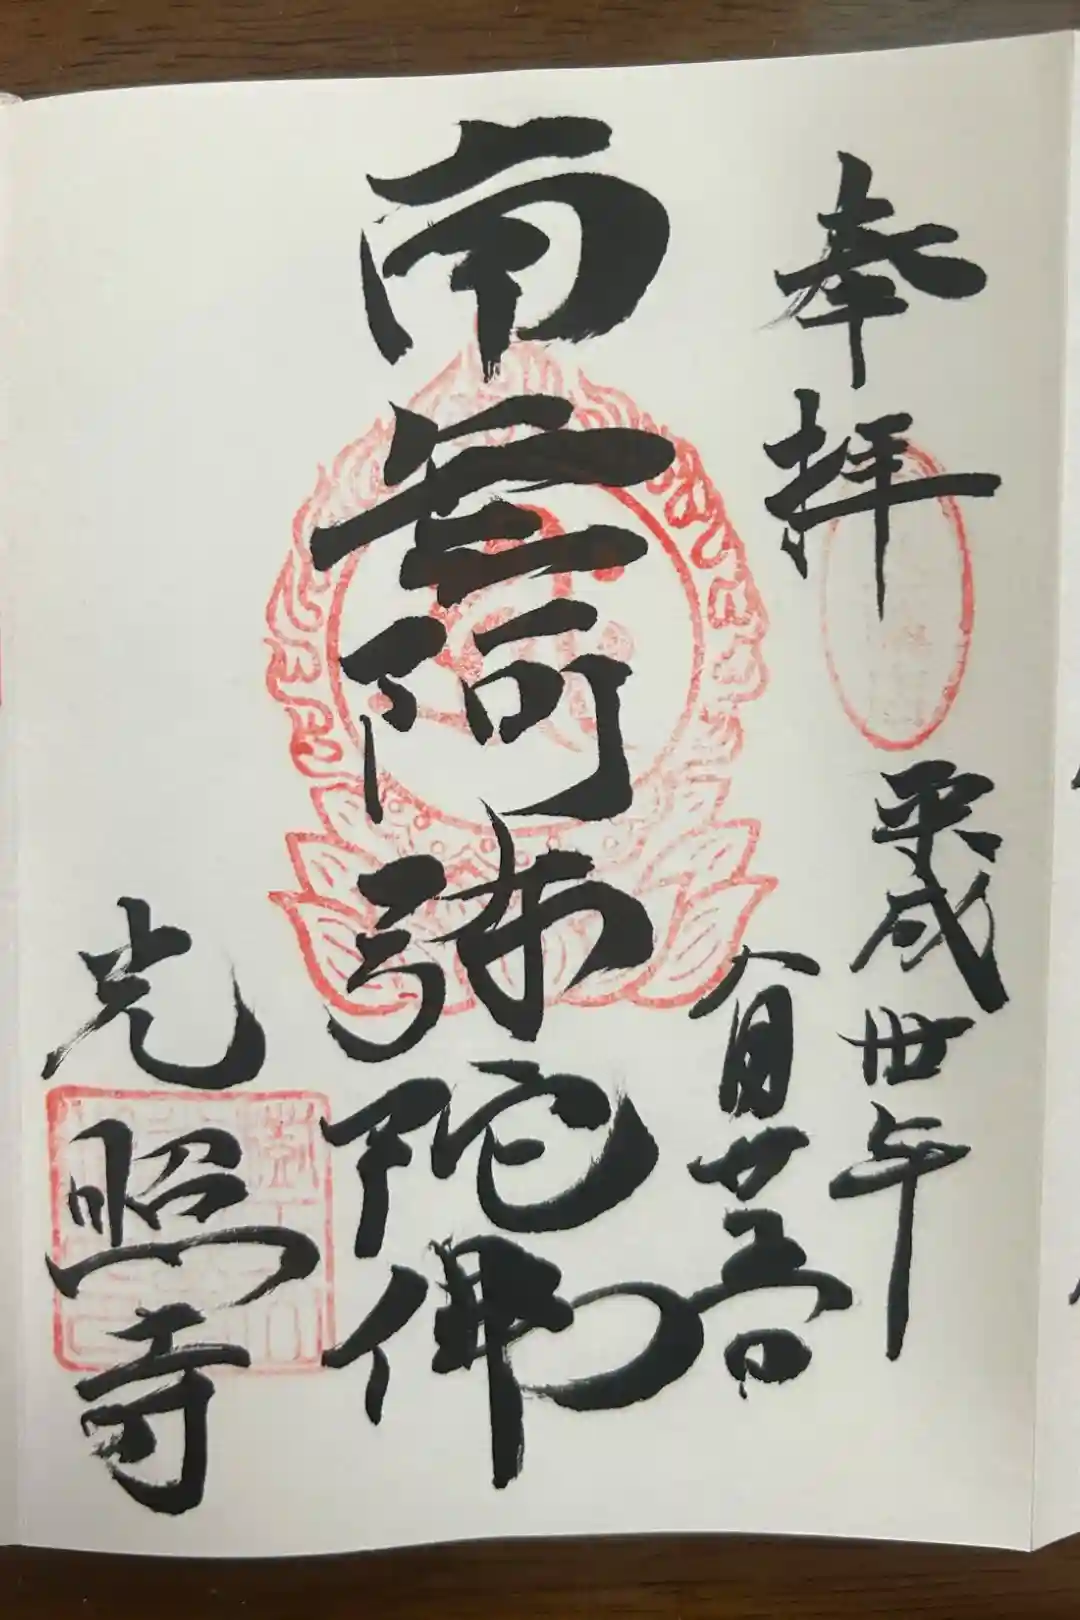 奉拝
平成卅年
八月廿五日
南無阿弥陀佛
光照寺